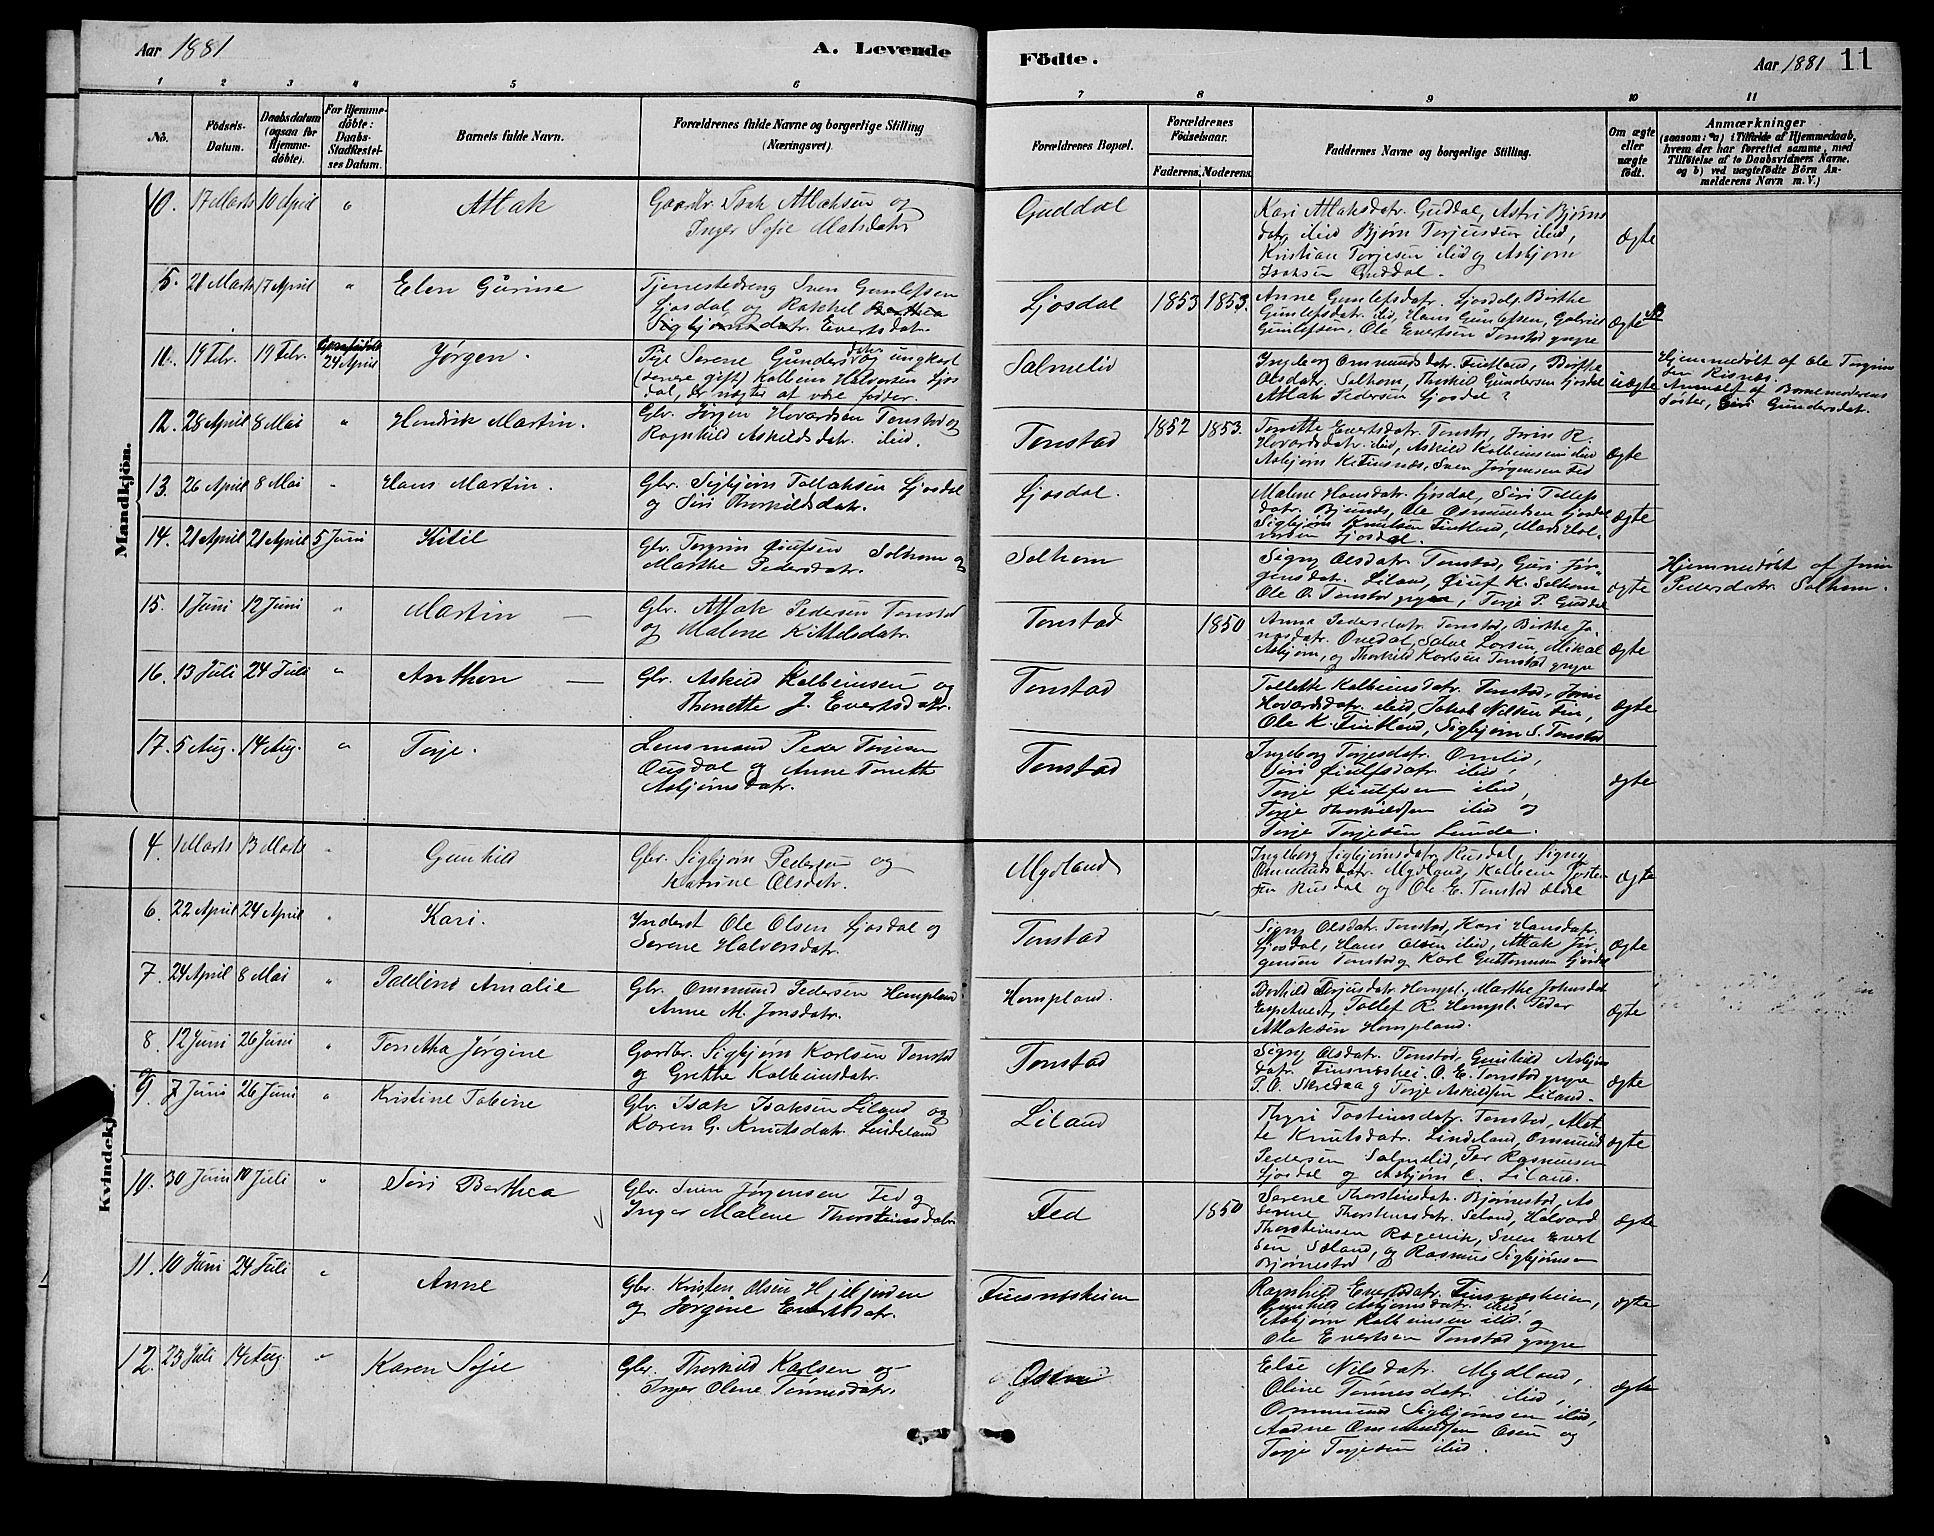 Aar 1881
A. Levende
Födte.
Aar 1881
11
1 2 3 4 5 6 7 8 9 10 11
No.
Födsels-
Datum.
Daabsdatum
(ogsaa for
Hjemme-
döbte).
For Hjemme-
döbte:
Daabs-
Stadfæstel-
ses Datum.
Barnets fulde Navn.
Forældrenes fulde Navne og borgerlige Stilling
(Næringsvei).
Forældrenes Bopæl.
Forældrenes
Födselsaar.
Faderens. Moderens.
Faddernes Navne og borgerlige Stilling.
Om ægte
eller
uægte
födt.
Anmærkninger
(saasom: a) i Tilfælde af Hjemmedaab,
hvem der har forrettet samme, med
Tilföielse af to Daabsvidners Navne.
og b) ved uægtefödte Börn An-
melderens Navn m. V.)
Mandkjön.
10. 17 Marts 10 April " Atlak
Gaardbr. Isak Atlaksen og
Inger Sofie Matsdatr.
Guddal
Kari Atlaksdatr. Guddal, Astri Bjørns
datr. ibid Bjørn Torjussen ibid,
Kristian Torjesen ibid og Asbjørn
Isaksen Guddal.
ægte
5. 28 Marts 17 April " Elen Gurine
Tjenestedreng Sven Gunlefsen
Ljosdal og Rakkel Berthea
Sigbjørnsdatr. Evertsdatr.
Ljosdal 1853 1853.
Anne Gunlefsdatr. Ljosdal, Birthe
Gunlefsdatr. ibid, Hans Gunlefsen, Gabriel
Gunlefsen, Ole Evertsen Tonstad yngre
ægte
11. 19 Febr. 19 Febr. 24 April Jørgen.
Pige Serene Gundersdatr og ungkarl
(senere gift) Kolbein Halvorsen Ljos
dal, der nægter at være fader.
Salmelid
Ingeborg Omundsdatr. Fintland, Birthe
Olsdatr. Solhom, Thorkild Gundersen Ljosdal
Atlak Pedersen Ljosdal?
uægte
Hjemmedøbt af Ole Torgrim
sen Risnæs.
Anmeldt af Barnemoderens
Søster, Siri Gundersdat.
12. 28 April 8 Mai " Hendrik Martin.
Gbr. Jørgen Hovardsen Tonstad og
Ragnhild Askildsdatr. ibid.
Tonstad 1852 1853.
Tonette Evertsdatr. Tonstad, Jorin R.
Hovardsdatr. ibid, Askild Kolbeinsen ibid
Asbjørn Ketilsnæs, Sven Jørgensen Fed
ægte
13. 26 April 8 Mai " Hans Martin.
Gbr. Sigbjørn Tollaksen Ljosdal
og Siri Thorkildsdatr.
Ljosdal.
Malene Hansdatr. Ljosdal, Siri Tollefs
datr. Bjunes, Ole Osmundsen Ljosdal
Sigbjørn Knutsen Fintland, Mads Hal-
vorsen Ljosdal.
ægte
14. 21 April 21 April 5 Juni Kitil
Gbr. Torgrim Eiulfsen Solhom og
Marthe Pedersdatr.
Solhom
Signy Olsdatr. Tonstad, Guri Jør-
gensdatr. Liland, Eiulf K. Solhom
Ole O. Tonstad yngre, Torje P. Guddal
ægte
Hjemmedøbt af Jorin
Pedersdatr. Solhom.
15. 1 Juni 12 Juni " Martin
Gbr. Atlak Pedersen Tonstad
og Malene Kittelsdatr.
Tonstad 1850
Anna Pedersdatr. Tonstad, Birthe Jo-
nasdatr. Ovedal, Salve Larsen, Mikal
Asbjørn, og Thorkild Karlsen Tonstad yngre
ægte
16. 13 Juli 24 Juli " Anthon
Gbr. Askild Kolbeinsen og
Thonette J. Evertsdatr.
Tonstad
Tollette Kolbeinsdatr. Tonstad, Jorin
Hovardsdatr. ibid, Jakob Nilsen Fin,
Ole K. Fintland, Sigbjørn S. Tonstad
ægte
17. 5 Aug. 14 Aug. " Torje.
Lensmand Peder Torjesen
Ousdal og Anne Tonette
Asbjørnsdatr.
Tonstad
Ingeborg Torjesdatr. Omlid,
Siri Eiulfsdatr. ibid,
Torje Eiulfsen ibid,
Torje Thorkildsen ibid og
Torje Torjesen Lunde.
ægte
Kvindekj.
4. 1 Marts 13 Marts " Gunhild
Gbr. Sigbjørn Pedersen og
Katrine Olsdatr.
Mydland
Ingeborg Sigbjørnsdatr. Rusdal, Signy
Ommundsdatr. Mydland, Kolbein Tosten
sen Rusdal og Ole E. Tonstad ældre
ægte
6. 22 April 24 April " Kari.
Inderst Ole Olsen Ljosdal og
Serene Halvorsdatr.
Tonstad
Signy Olsdatr. Tonstad, Kari Hansdatr.
Ljosdal, Hans Olsen ibid, Atlak Jør-
gensen Tonstad og Karl Guttormsen Ljosdal
ægte
7. 24 April 8 Mai " Paldine Amalie
Gbr. Ommund Pedersen Hompland
Anne M. Jonsdatr.
Hompland.
Borhild Terjusdatr. Hompl. Marthe Johnsdat
Espetvedt, Tollef R. Hompl. Peder
Atlaksen Hompland.
ægte
8. 12 Juni 26 Juni " Tonetha Jørgine
Gardbr. Sigbjørn Karlsen Tonstad
og Grethe Kolbeinsdatr.
Tonstad
Signy Olsdatr. Tonstad, Gunhild Asbjørns
datr. Finsnæshei. O. E. Tonstad yngre
P. O. Skredaa og Torje Askildsen Liland.
ægte
9. 7 Juni 26 Juni " Kristine Tobine
Gbr. Isak Isaksen Liland og
Karen G. Knutsdatr. Lindeland
Liland
Thyri Tosteinsdatr. Tonstad, Alet-
te Knutsdatr. Lindeland, Ommund
Pedersen Salmelid, Per Rasmusen
Ljosdal og Asbjørn E. Liland.
ægte
10. 30 Juni 10 Juli " Siri Berthea
Gbr. Sven Jørgensen Fed og
Inger Malene Thorsteinsdatr.
Fed 1850
Serene Thorsteinsdatr. Bjørnestad, As
Serene Thorsteinsdatr. Seland, Halvard
Thorsteinsen Rægevik, Sven Evert
sen Seland, og Rasmus Sigbjørnsen
Bjørnestad
ægte
11. 10 Juni 24 Juli " Anne
Gbr. Kristen Olsen
og Jørgine Evertsdatr.
Finsnæsheien
Ragnhild Evertsdatr. Finsnæsheien,
Gunhild Asbjørnsdatr. ibid,
Asbjørn Kolbeinsen ibid. og
Ole Evertsen Tonstad yngre
ægte
12. 23 Juli 14 Aug. " Karen Sofie
Gbr. Thorkild Karlsen og
Inger Oline Tønnesdatr.
Osen
Else Nilsdatr. Mydland,
Oline Tønnesdatr. ibid,
Ommund Sigbjørnsen ibid,
Aadne Ommundsen Osen og
Torje Torjesen ibid.
ægte